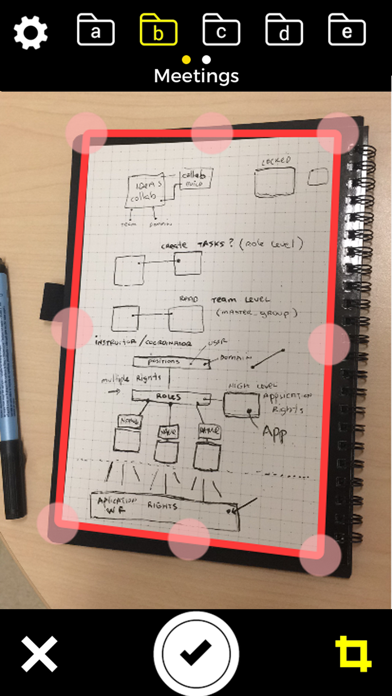 a b c d e
Meetings
IDEAS
collab
collab
LOCKED
CREATE TASKS? (Role level)
ROAD TEAM LEVEL
(master_group)
INSTRUCTOR / COORDINATOR
USER
positions
DOMAIN
multiple Rights
ROLES
HIGH LEVEL
Application
Rights
App
NAME
NAME
NAME
APPLICATION RIGHTS
WF